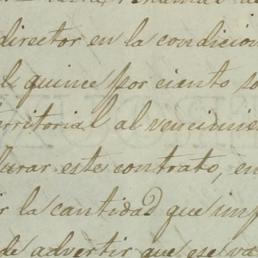 director en la condicion
quince por ciento so
rritorial al vencimie
urar este contrato, en
r la cantidad que imp
de advertir que